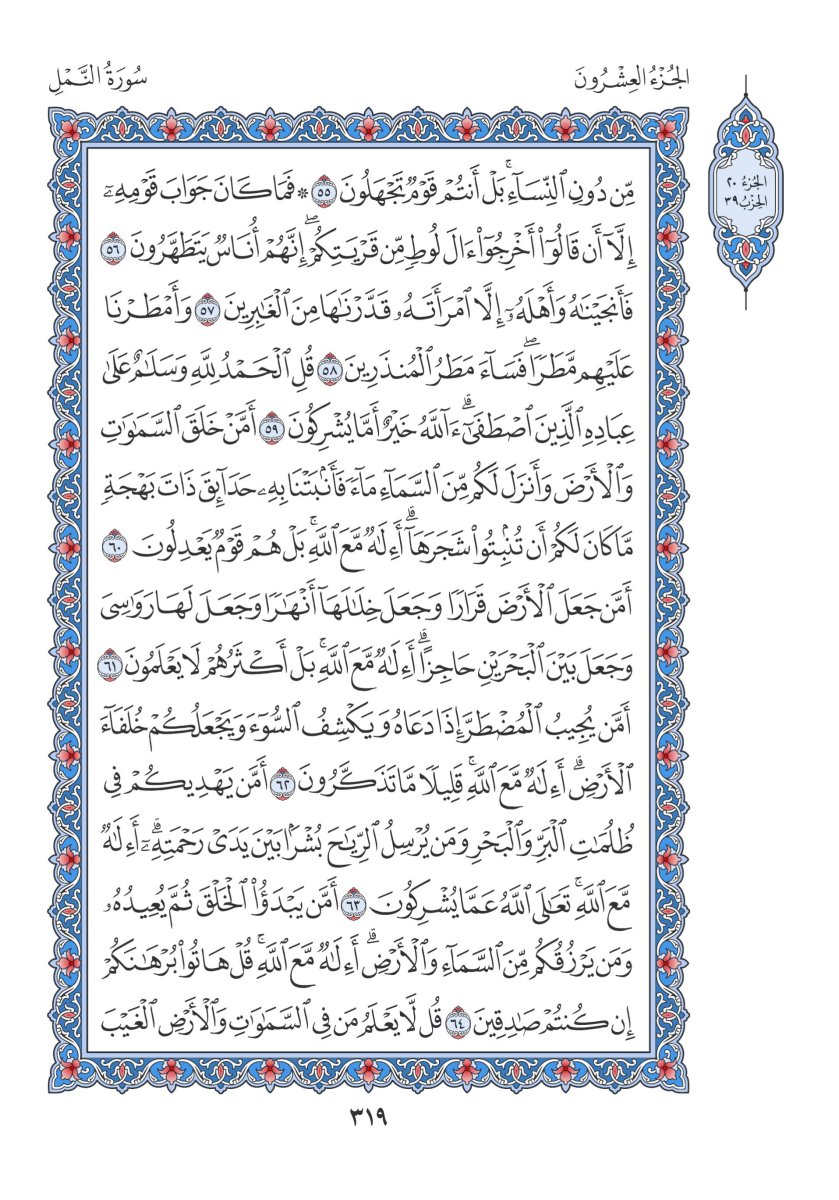 الجُزْءُ العِشْرُونَ
سُورَةُ النَّمْلِ
الجُزءُ ٢٠
الحِزْبُ ٣٩
مِّن دُونِ ٱلنِّسَآءِۚ بَلۡ أَنتُمۡ قَوۡمٞ تَجۡهَلُونَ ٥٥ ۞ فَمَا كَانَ جَوَابَ قَوۡمِهِۦٓ
إِلَّآ أَن قَالُوٓاْ أَخۡرِجُوٓاْ ءَالَ لُوطٖ مِّن قَرۡيَتِكُمۡۖ إِنَّهُمۡ أُنَاسٞ يَتَطَهَّرُونَ ٥٦
فَأَنجَيۡنَٰهُ وَأَهۡلَهُۥٓ إِلَّا ٱمۡرَأَتَهُۥ قَدَّرۡنَٰهَا مِنَ ٱلۡغَٰبِرِينَ ٥٧ وَأَمۡطَرۡنَا
عَلَيۡهِم مَّطَرٗاۖ فَسَآءَ مَطَرُ ٱلۡمُنذَرِينَ ٥٨ قُلِ ٱلۡحَمۡدُ لِلَّهِ وَسَلَٰمٌ عَلَىٰ
عِبَادِهِ ٱلَّذِينَ ٱصۡطَفَىٰٓۗ ءَآللَّهُ خَيۡرٌ أَمَّا يُشۡرِكُونَ ٥٩ أَمَّنۡ خَلَقَ ٱلسَّمَٰوَٰتِ
وَٱلۡأَرۡضَ وَأَنزَلَ لَكُم مِّنَ ٱلسَّمَآءِ مَآءٗ فَأَنۢبَتۡنَا بِهِۦ حَدَآئِقَ ذَاتَ بَهۡجَةٖ
مَّا كَانَ لَكُمۡ أَن تُنۢبِتُواْ شَجَرَهَآۗ أَءِلَٰهٞ مَّعَ ٱللَّهِۚ بَلۡ هُمۡ قَوۡمٞ يَعۡدِلُونَ ٦٠
أَمَّن جَعَلَ ٱلۡأَرۡضَ قَرَارٗا وَجَعَلَ خِلَٰلَهَآ أَنۡهَٰرٗا وَجَعَلَ لَهَا رَوَٰسِيَ
وَجَعَلَ بَيۡنَ ٱلۡبَحۡرَيۡنِ حَاجِزًاۗ أَءِلَٰهٞ مَّعَ ٱللَّهِۚ بَلۡ أَكۡثَرُهُمۡ لَا يَعۡلَمُونَ ٦١
أَمَّن يُجِيبُ ٱلۡمُضۡطَرَّ إِذَا دَعَاهُ وَيَكۡشِفُ ٱلسُّوٓءَ وَيَجۡعَلُكُمۡ خُلَفَآءَ
ٱلۡأَرۡضِۗ أَءِلَٰهٞ مَّعَ ٱللَّهِۚ قَلِيلٗا مَّا تَذَكَّرُونَ ٦٢ أَمَّن يَهۡدِيكُمۡ فِي
ظُلُمَٰتِ ٱلۡبَرِّ وَٱلۡبَحۡرِ وَمَن يُرۡسِلُ ٱلرِّيَٰحَ بُشۡرَۢا بَيۡنَ يَدَيۡ رَحۡمَتِهِۦٓۗ أَءِلَٰهٞ
مَّعَ ٱللَّهِۚ تَعَٰلَى ٱللَّهُ عَمَّا يُشۡرِكُونَ ٦٣ أَمَّن يَبۡدَؤُاْ ٱلۡخَلۡقَ ثُمَّ يُعِيدُهُۥ
وَمَن يَرۡزُقُكُم مِّنَ ٱلسَّمَآءِ وَٱلۡأَرۡضِۗ أَءِلَٰهٞ مَّعَ ٱللَّهِۚ قُلۡ هَاتُواْ بُرۡهَٰنَكُمۡ
إِن كُنتُمۡ صَٰدِقِينَ ٦٤ قُل لَّا يَعۡلَمُ مَن فِي ٱلسَّمَٰوَٰتِ وَٱلۡأَرۡضِ ٱلۡغَيۡبَ
٣١٩